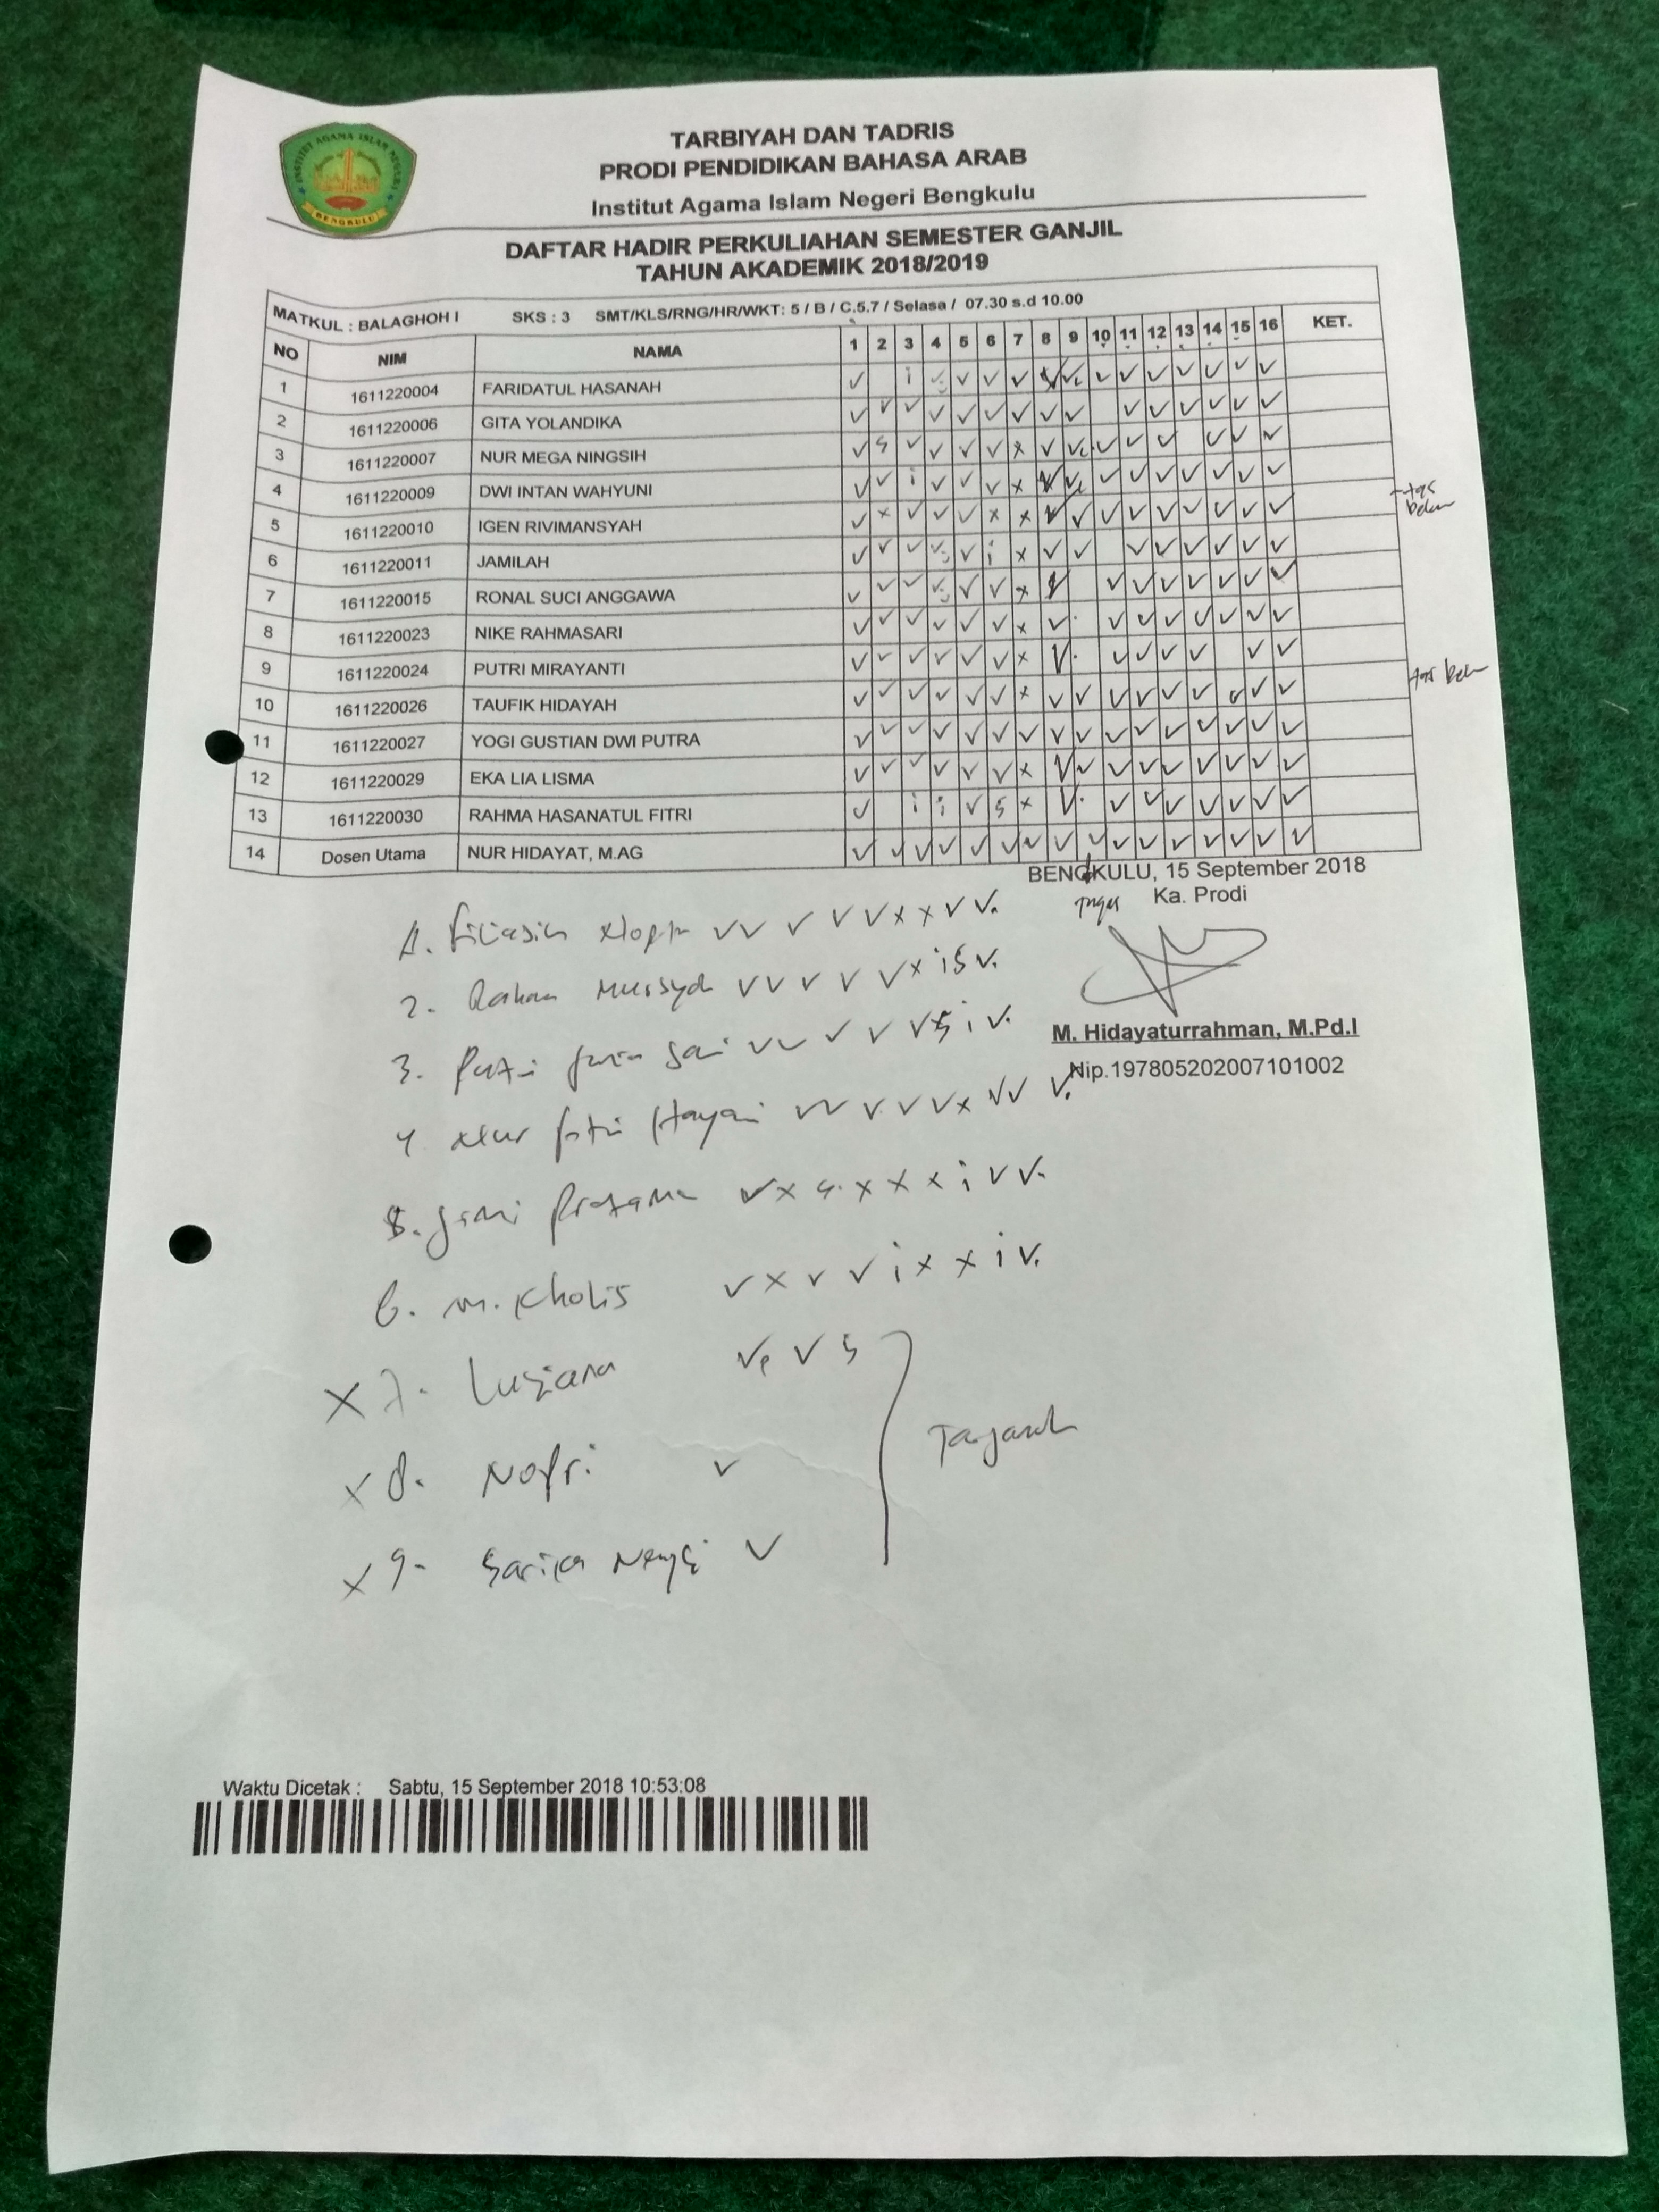 INSTITUT AGAMA ISLAM NEGERI
BENGKULU
TARBIYAH DAN TADRIS
PRODI PENDIDIKAN BAHASA ARAB
Institut Agama Islam Negeri Bengkulu
DAFTAR HADIR PERKULIAHAN SEMESTER GANJIL
TAHUN AKADEMIK 2018/2019
MATKUL : BALAGHOH I SKS : 3 SMT/KLS/RNG/HR/WKT: 5 / B / C.5.7 / Selasa / 07.30 s.d 10.00
NO NIM NAMA 1 2 3 4 5 6 7 8 9 10 11 12 13 14 15 16 KET.
1 1611220004 FARIDATUL HASANAH
2 1611220006 GITA YOLANDIKA
3 1611220007 NUR MEGA NINGSIH
4 1611220009 DWI INTAN WAHYUNI
5 1611220010 IGEN RIVIMANSYAH
6 1611220011 JAMILAH
7 1611220015 RONAL SUCI ANGGAWA
8 1611220023 NIKE RAHMASARI
9 1611220024 PUTRI MIRAYANTI
10 1611220026 TAUFIK HIDAYAH
11 1611220027 YOGI GUSTIAN DWI PUTRA
12 1611220029 EKA LIA LISMA
13 1611220030 RAHMA HASANATUL FITRI
14 Dosen Utama NUR HIDAYAT, M.AG
BENGKULU, 15 September 2018
Ka. Prodi
M. Hidayaturrahman, M.Pd.I
Nip.197805202007101002
1.
2.
3.
4. Nur
5. Pratama
6. M. Kholis
x 7. Lusiana
x 8. Nofri
x 9. Sarika
Waktu Dicetak : Sabtu, 15 September 2018 10:53:08